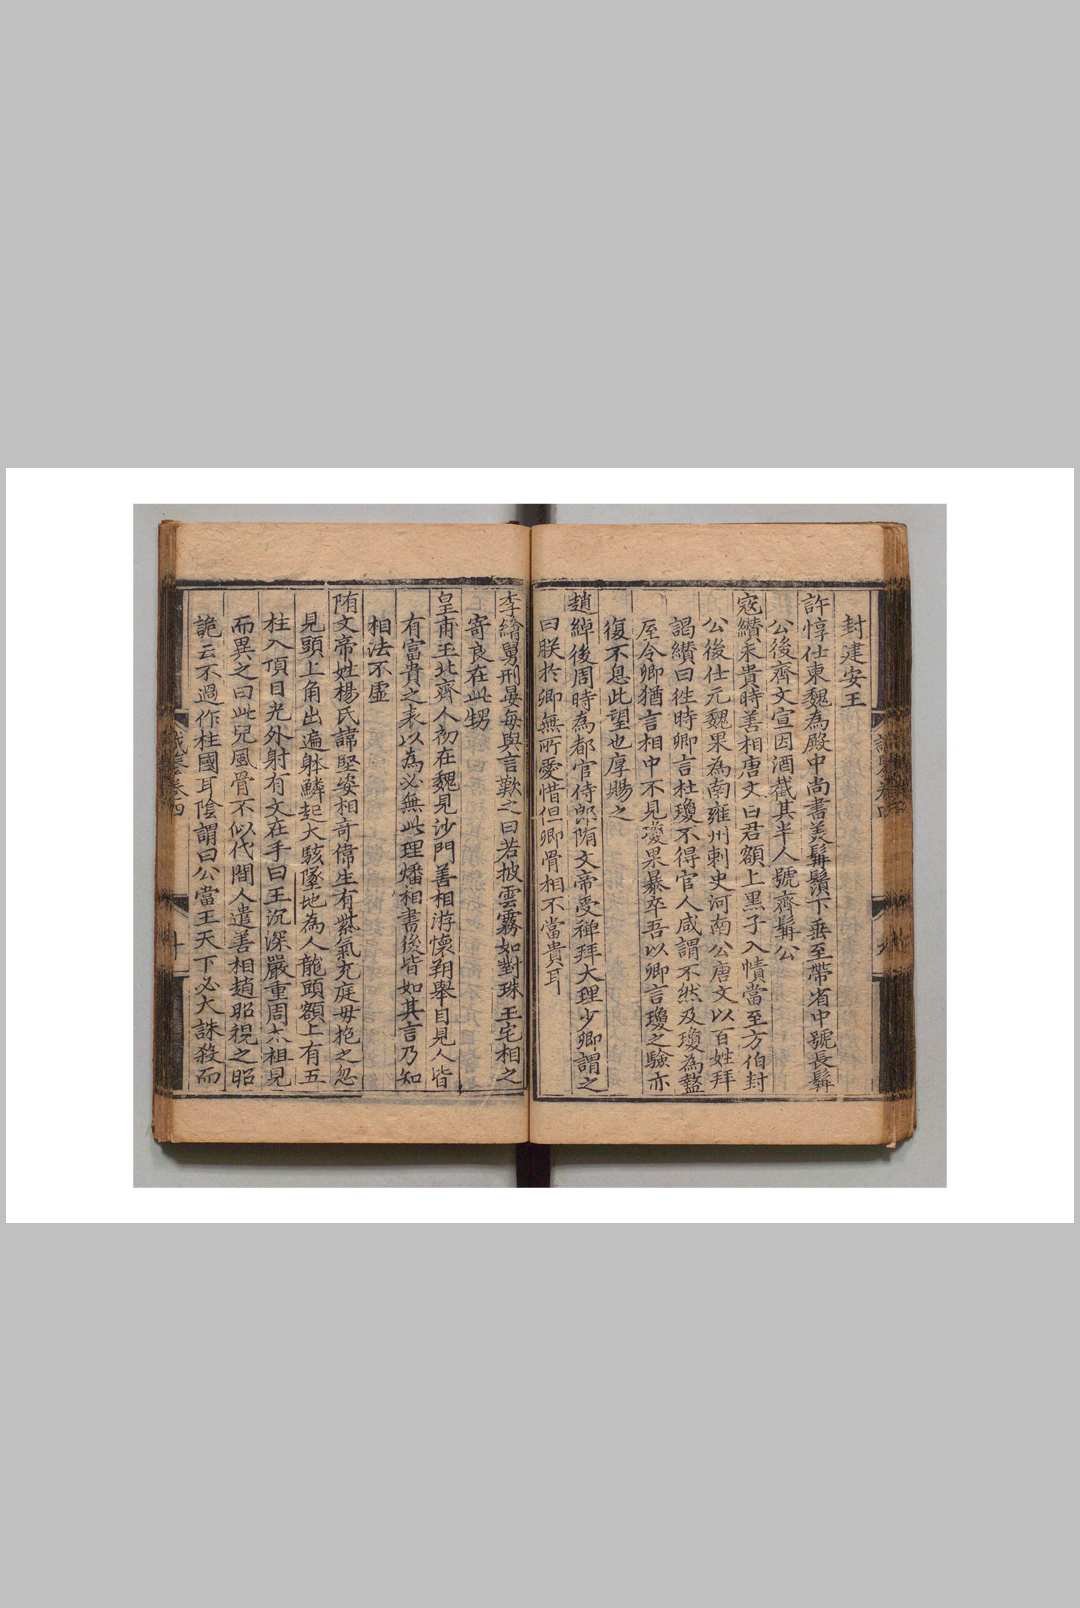 封建安王
許惇仕東魏為殿中尚書美髯鬚下垂至帶省中號長髯
公後齊文宣因酒截其半人號齊髯公
寇纉未貴時善相唐文曰君額上黑子入幘當至方伯封
公後仕元魏果為南雍州刺史河南公唐文以百姓拜
謁纉曰徃時卿言杜瓊不得官人咸謂不然及瓊為盩
厔令卿猶言相中不見瓊果暴卒吾以卿言瓊之驗亦
復不息此望也厚賜之
趙綽後周時為都官侍郎隋文帝受禅拜大理少卿謂之
曰朕於卿無所愛惜但卿骨相不當貴耳
李繪舅刑晏每與言歎之曰若披雲霧如對珠玉宅相之
寄良在此甥
皇甫玉北齊人初在魏見沙門善相游懷朔舉目見人皆
有富貴之表以為必無此理燔相書後皆如其言乃知
相法不虛
隋文帝姓楊氏諱堅姿相奇偉生有紫氣充庭毋抱之忽
見頭上角出遍躰鱗起大駭墜地為人龍頭額上有五
柱入頂目光外射有文在手曰王沉深嚴重周太祖見
而異之曰此兒風骨不似代間人遣善相趙昭視之昭
詭云不過作柱國耳陰謂曰公當王天下必大誅殺而